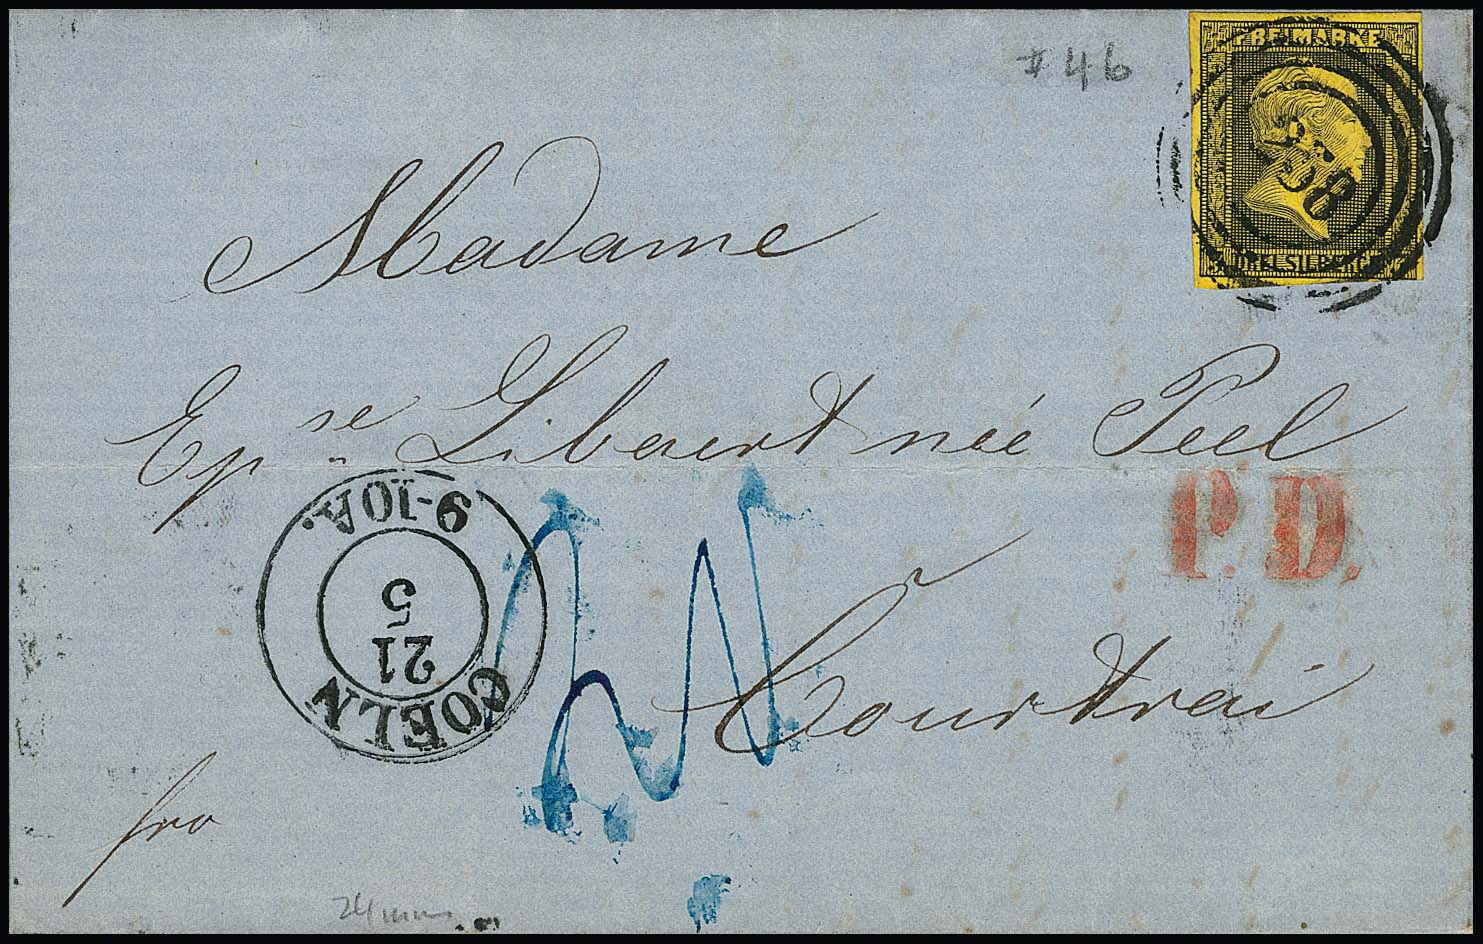 # 46
FREIMARKE
DREI SILBERGR.
Madame
Epse Libaert née Peel
P. D.
9-10 A.
5
21
COELN
Courtrai
fro
24 mm